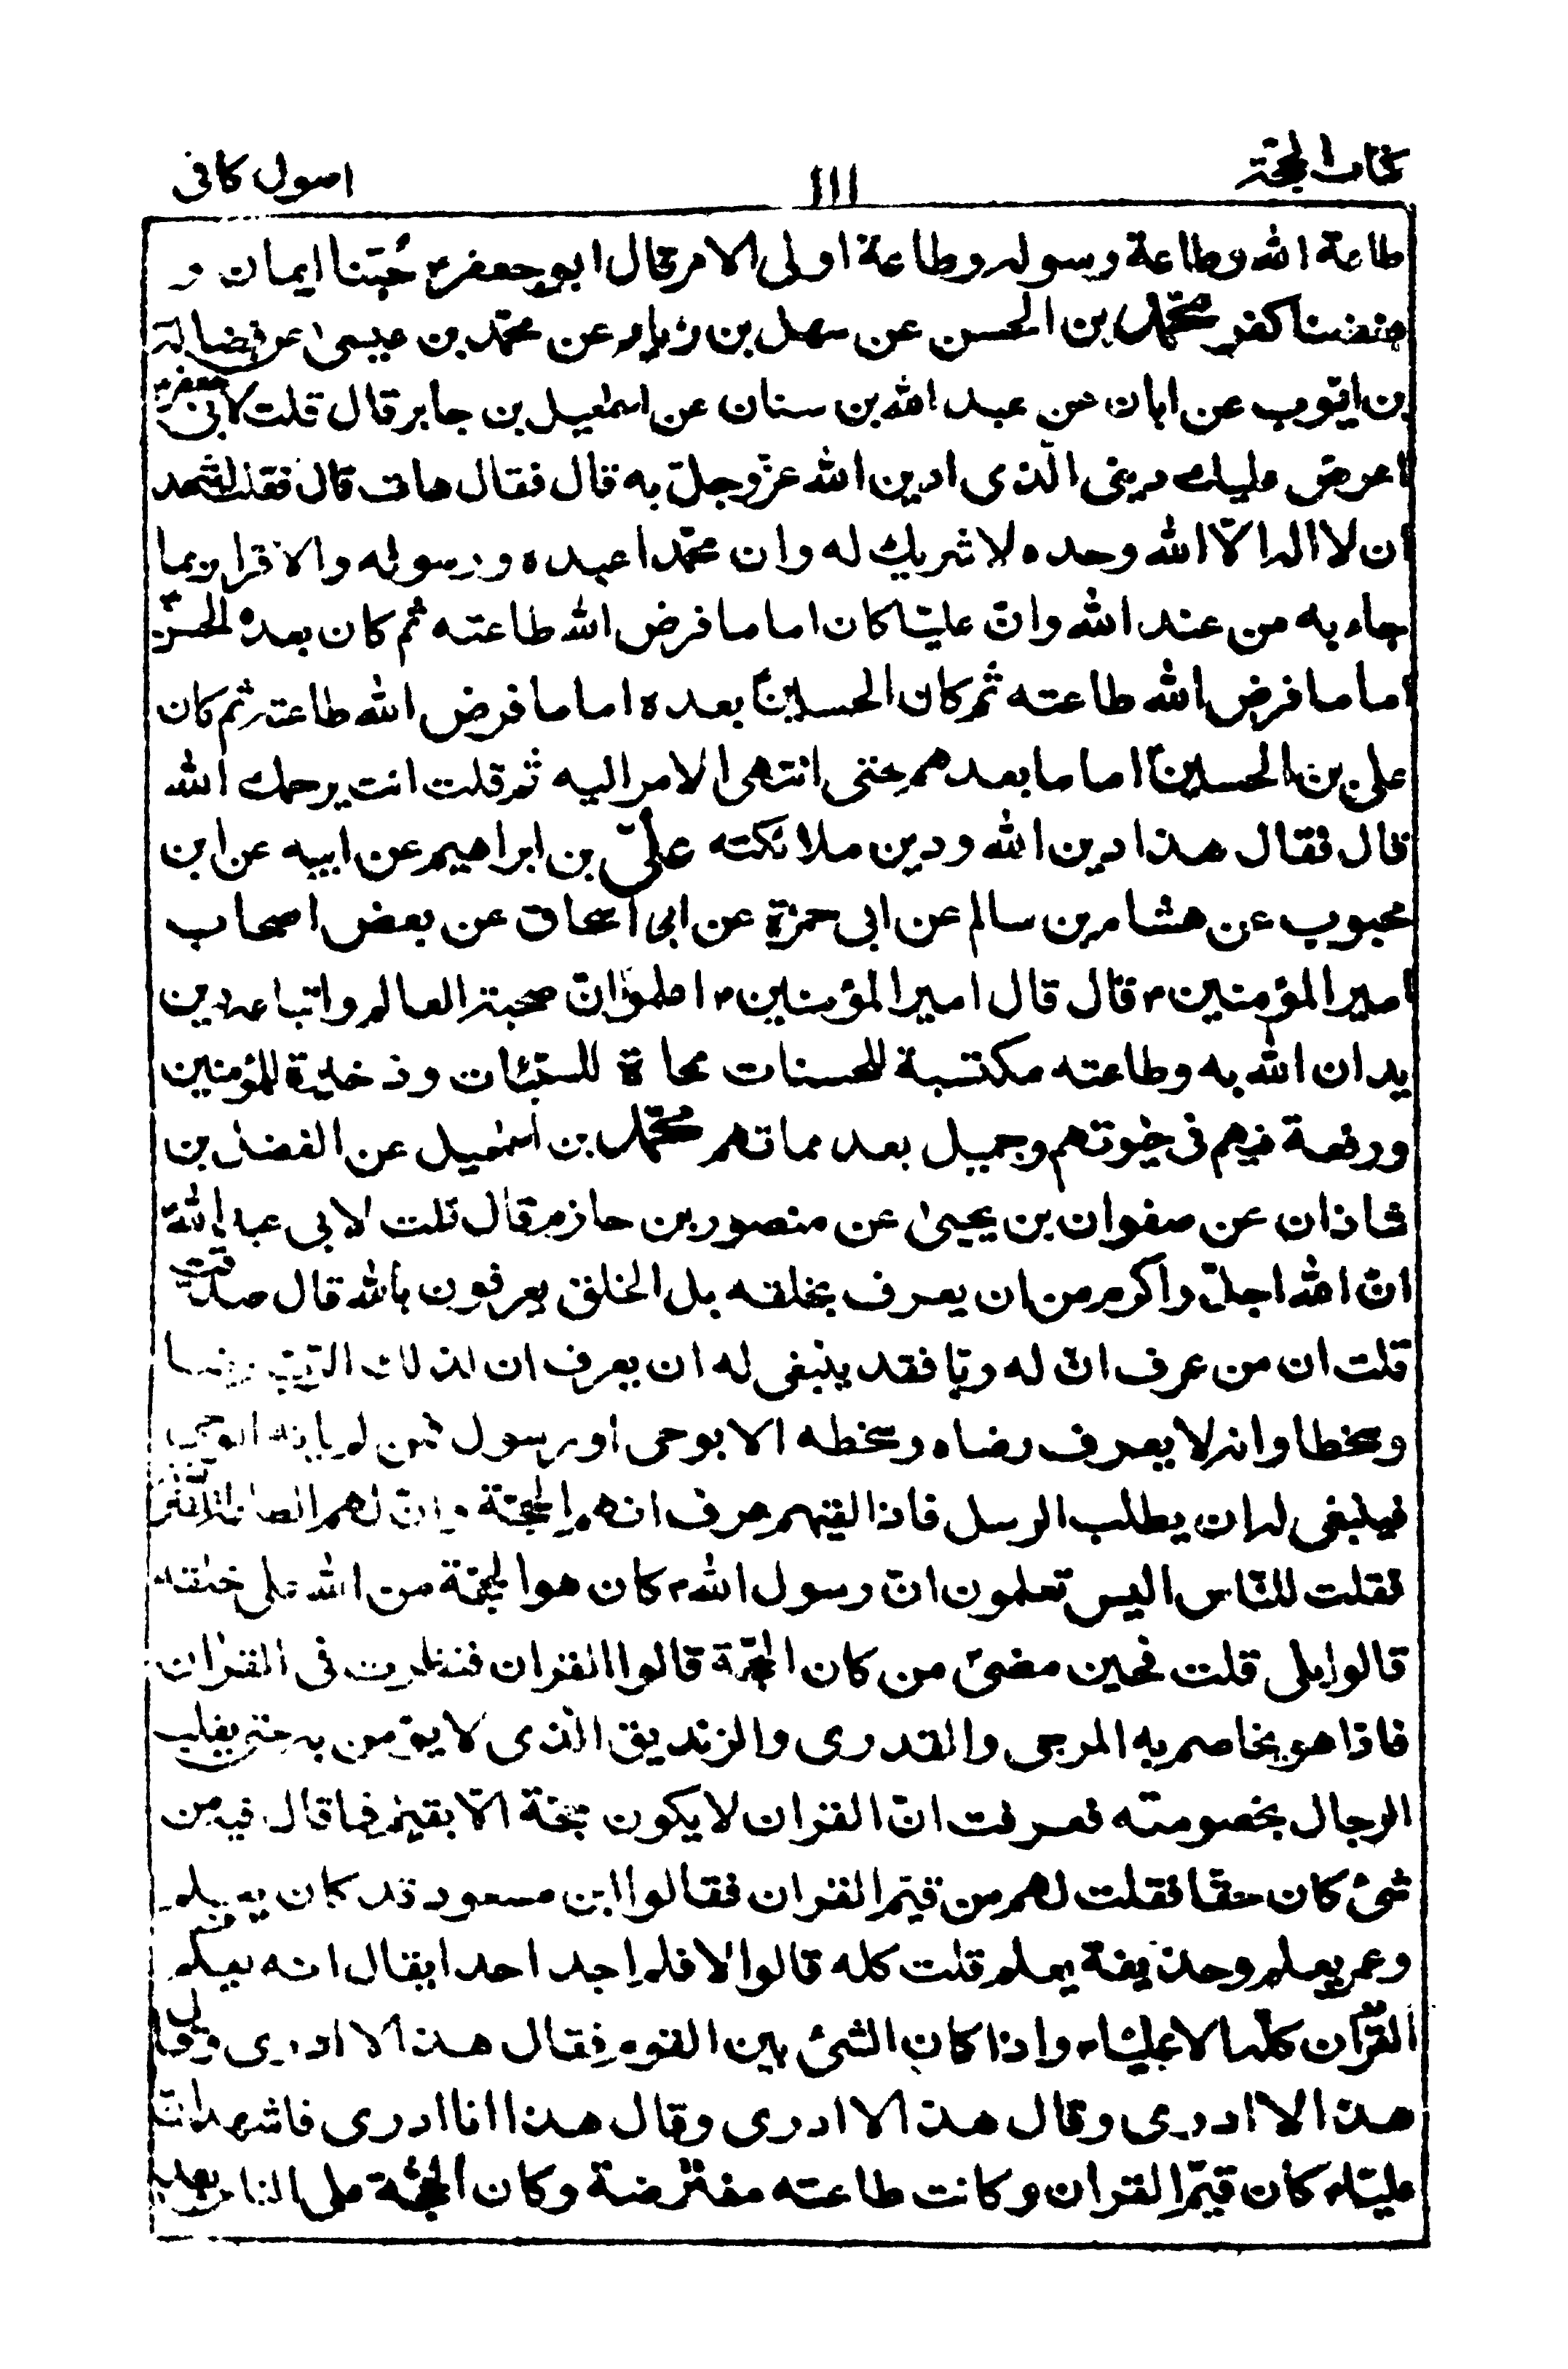 كتاب الحجة ١١١ اصول كافى
طاعة الله وطاعة رسوله وطاعة اولى الامر قال ابو جعفر ع حبّنا ايمان و
بغضنا كفر محمّد بن الحسن عن سهل بن زياد عن محمّد بن عيسى عن فضالة
بن ايّوب عن ابان عن عبد الله بن سنان عن اسمعيل بن جابر قال قلت لابى جعفر ع
اعرض عليك دينى الّذى ادين الله عزّ وجلّ به قال فقال هات قال فقلت اشهد
ان لا اله الّا الله وحده لا شريك له وان محمّدا عبده ورسوله والاقرار بما
جاء به من عند الله وانّ عليّا كان اماما فرض الله طاعته ثم كان بعده الحسن
اماما فرض الله طاعته ثم كان الحسين ع بعده اماما فرض الله طاعته ثم كان
على بن الحسين ع اماما بعدهم حتى انتهى الامر اليه ثم قلت انت يرحمك الله
قال فقال هذا دين الله ودين ملائكته علىّ بن ابراهيم عن ابيه عن ابن
محبوب عن هشام بن سالم عن ابى حمزة عن ابى اسحاق عن بعض اصحاب
امير المؤمنين ع قال قال امير المؤمنين ع اعلموا انّ صحبة العالم واتباعه دين
يدان الله به وطاعته مكتسبة للحسنات محاة للسيّئات وذخيرة للمؤمنين
ورفعة فيهم فى حيوتهم وجميل بعد مماتهم محمّد بن اسمعيل عن الفضل بن
شاذان عن صفوان بن يحيى عن منصور بن حازم قال قلت لابى عبد الله ع
انّ الله اجلّ واكرم من ان يعرف بخلقه بل الخلق يعرفون بالله قال صدقت
قلت ان من عرف انّ له ربّا فقد ينبغى له ان يعرف ان لذلك الرّبّ رضا
وسخطا وانه لا يعرف رضاه وسخطه الا بوحى او رسول فمن لم ياته الوحى
فينبغى له ان يطلب الرسل فاذا لقيهم عرف انهم الحجّة وانّ لهم الطاعة
فقلت للنّاس اليس تعلمون انّ رسول الله ص كان هو الحجّة من الله على خلقه
قالوا بلى قلت فحين مضى من كان الحجّة قالوا القران فنظرت فى القران
فاذا هو يخاصم به المرجى والقدرى والزنديق الّذى لا يؤمن به حتى يغلب
الرجال بخصومته فعرفت انّ القران لا يكون حجّة الّا بقيّم فما قال فيه من
شئ كان حقا فقلت لهم من قيّم القران فقالوا ابن مسعود قد كان يعلم
وعمر يعلم وحذيفة يعلم قلت كله قالوا لا فلم اجد احدا يقال انه يعلم
القرآن كلّه الا عليّا ع واذا كان الشئ بين القوم فقال هذا لا ادرى وقال
هذا لا ادرى وقال هذا لا ادرى وقال هذا انا ادرى فاشهد انّ
عليّا ع كان قيّم القران وكانت طاعته مفترضة وكان الحجّة على الناس بعد